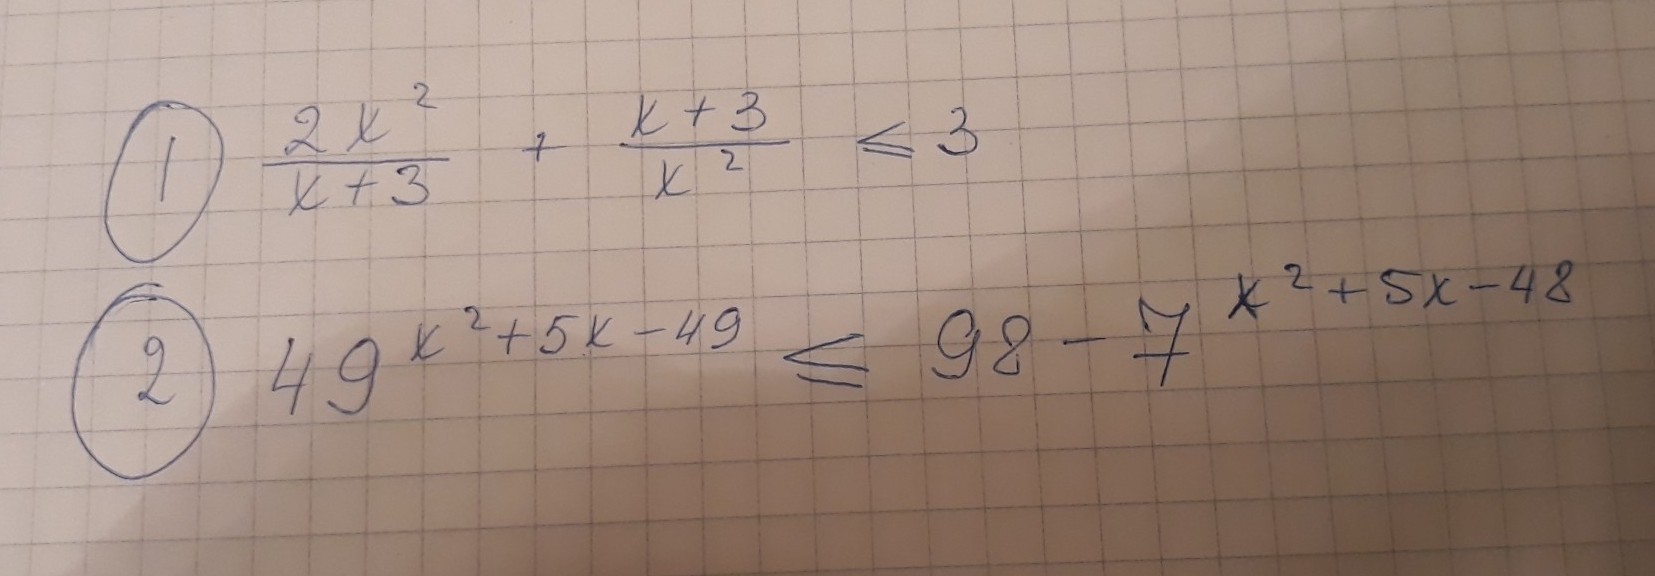 ① 2x²/(x+3) + (x+3)/x² ≤ 3
② 49^(x²+5x-49) ≤ 98 - 7^(x²+5x-48)